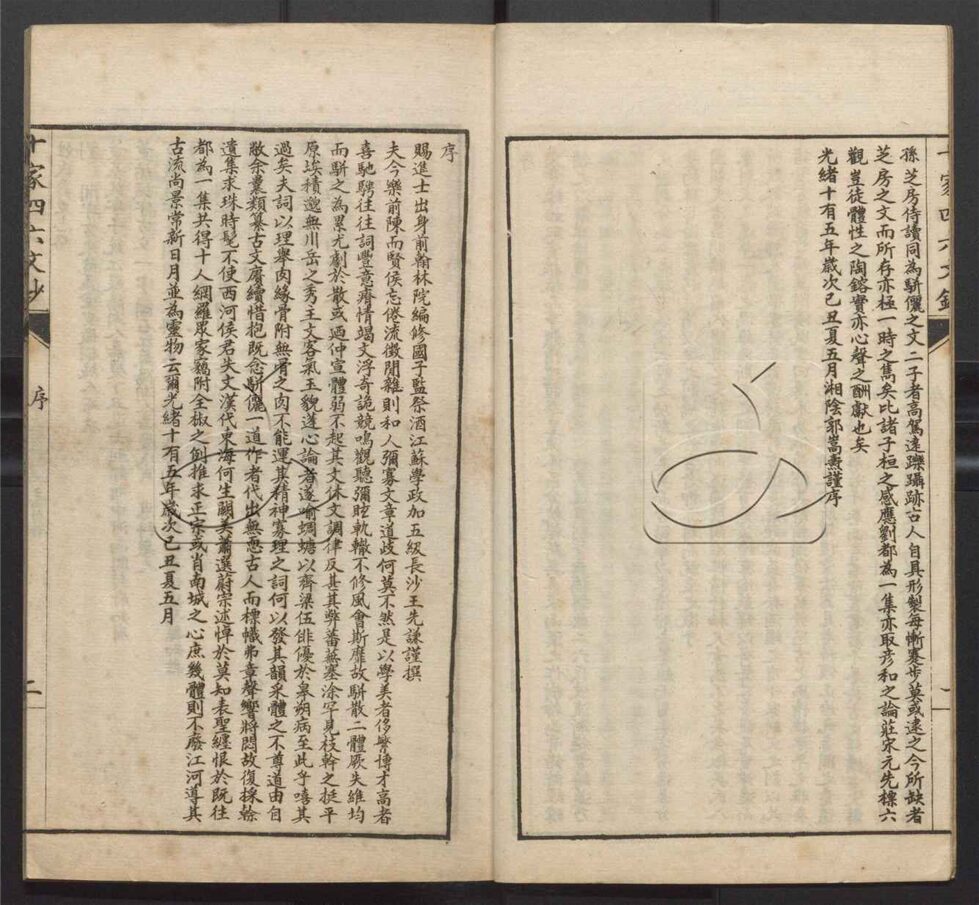 十家四六文鈔
孫芝房侍讀同為駢儷之文二子者高駕遠躒躡跡古人自具形製每慚蹇步莫或逮之今所缺者
芝房之文而所存亦極一時之雋矣比諸子桓之感應劉都為一集亦取彥和之論莊宋元先標六
觀豈徒體性之陶鎔實亦心聲之酬獻也矣
光緒十有五年歲次己丑夏五月湘陰郭嵩燾謹序
序
賜進士出身前翰林院編修國子監祭酒江蘇學政加五級長沙王先謙謹撰
夫今樂前陳而賢侯忘倦流徵閒雜則和人彌寡文章道歧何莫不然是以學美者侈繁博才高者
喜馳騁往往詞豐意瘠情竭文浮奇詭競鳴觀聽彌眩軌轍不修風會斯靡故駢散二體厥失維均
而駢之為累尤劇於散或迺仲宣體弱不起其文休文調律反甚其弊蕃蕪塞涂罕見枝幹之挺平
原埃積邈無川岳之秀主文客氣玉貌蓬心論者遂喻蜩螗以齊梁伍俳優於皋朔病至此乎嘻其
過矣夫詞以理舉肉緣骨附無骨之肉不能運其精神寡理之詞何以發其韻采體之不尊道由自
敝余曩類纂古文賡續惜抱既念駢儷一道作者代出無恧古人而標幟弗章聲響將閟故復採綜
遺集求珠時髦不使西河侯君失文漢代東海何生闕美蕭選蔚宗述悼於莫知表聖纏恨於既往
都為一集共得十人網羅眾家竊附全椒之例推求正宗或肖南城之心庶幾體則不廢江河導其
古流尚景常新日月並為靈物云爾光緒十有五年歲次己丑夏五月
十家四六文鈔
序
二